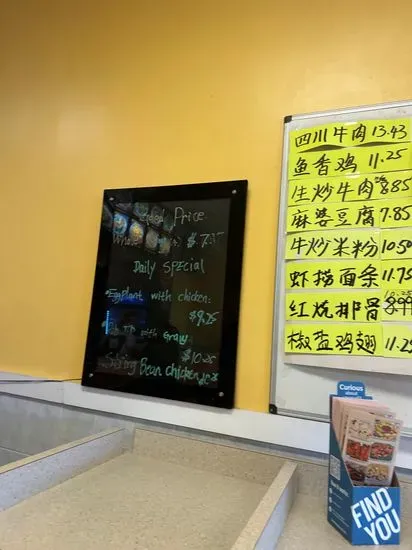 Price
$7.
Daily Special
Eggplant with chicken:
$9.25
with Gravy
$10.25
String Bean chicken
四川牛肉 13.43
鱼香鸡 11.25
生炒牛肉 8.85
麻婆豆腐 7.85
牛炒米粉 10.50
虾捞面条 11.75
红烧排骨
椒盐鸡翅 11.25
Curious
about
FIND
YOU